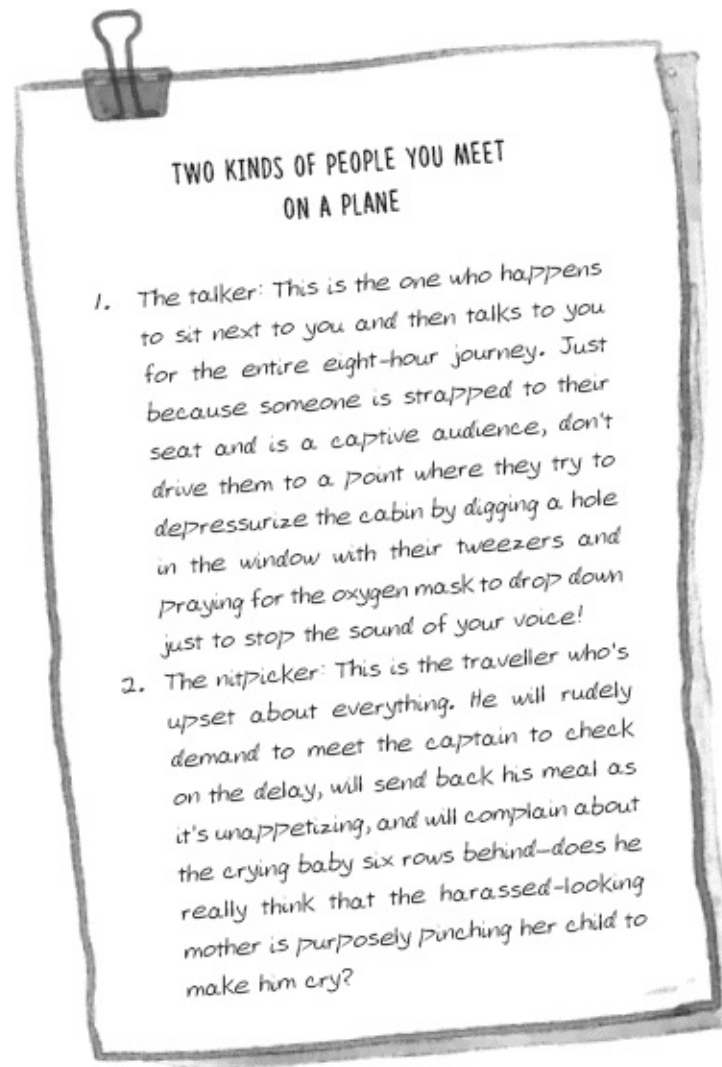 TWO KINDS OF PEOPLE YOU MEET
ON A PLANE
1. The talker: This is the one who happens
to sit next to you and then talks to you
for the entire eight-hour journey. Just
because someone is strapped to their
seat and is a captive audience, don't
drive them to a point where they try to
depressurize the cabin by digging a hole
in the window with their tweezers and
praying for the oxygen mask to drop down
just to stop the sound of your voice!
2. The nitpicker: This is the traveller who's
upset about everything. He will rudely
demand to meet the captain to check
on the delay, will send back his meal as
it's unappetizing, and will complain about
the crying baby six rows behind—does he
really think that the harassed-looking
mother is purposely pinching her child to
make him cry?